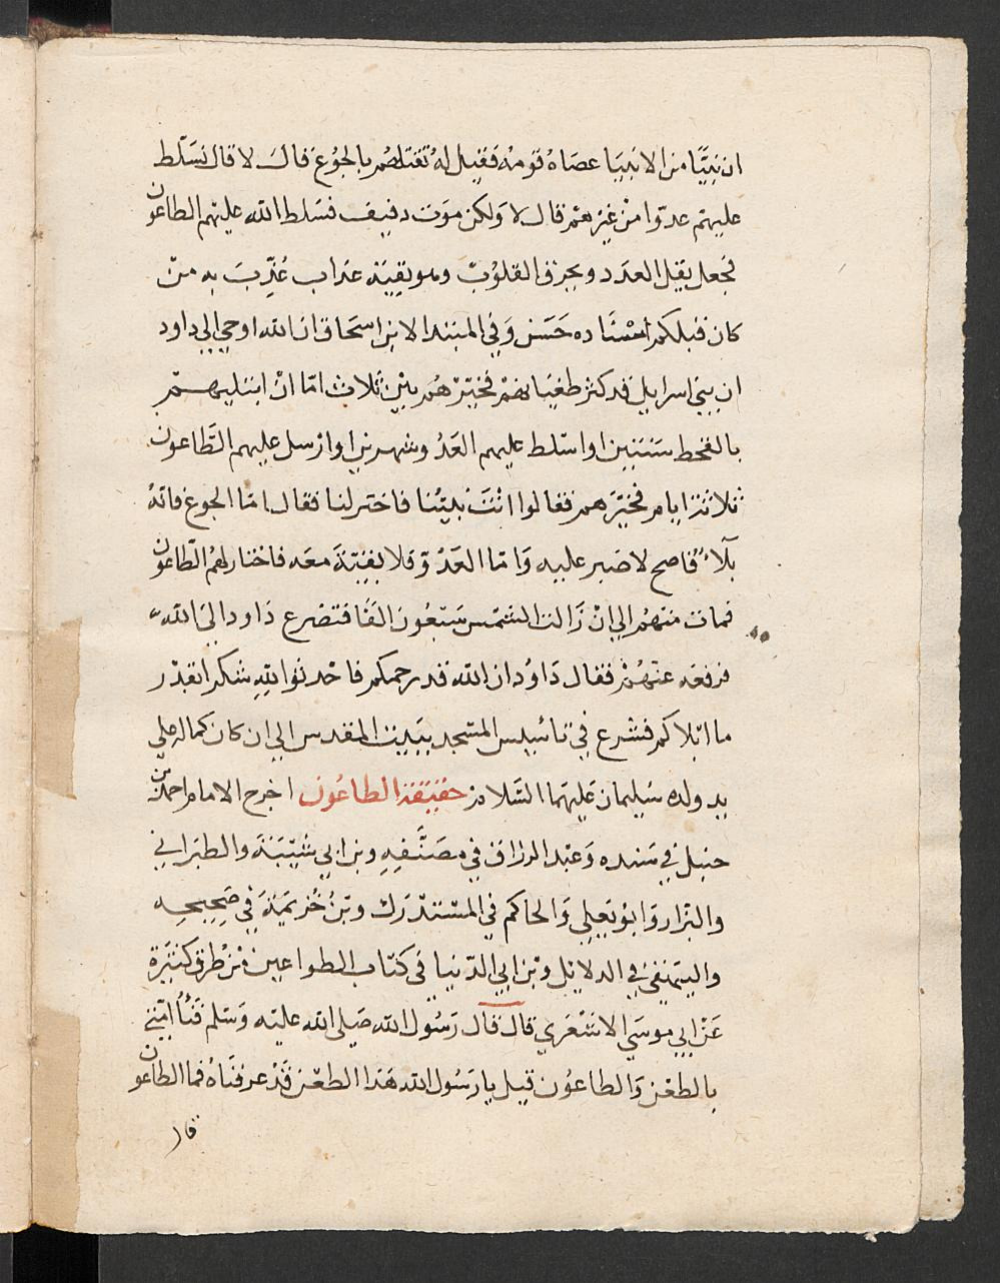 ان نبيًا من الانبيا عصاه قومه فقيل له تقتلهم بالجوع قال لا قال نسلط
عليهم عدوا من غيرهم قال لا ولكن موت دفيف فسلط الله عليهم الطاعون
فجعل يقل العدد ويحرق القلوب وهو بقية عذاب عُذّب به من
كان قبلكم اسناده حسن وفي المبتدا لابن اسحاق ان الله اوحي الي داود
ان بني اسرايل قد كثر طغيانهم فخيّرهم بين ثلاث امّا ان ابتليهم
بالقحط سنتين او اسلط عليهم العدو شهرين او ارسل عليهم الطاعون
ثلاثة ايام فخيّرهم فقالوا انت نبيّنا فاختر لنا فقال امّا الجوع فانه
بلاء فاصح لا صبر عليه وامّا العدوّ فلا بقية معه فاختار لهم الطاعون
فمات منهم الي ان زالت الشمس سبعون الفًا فتضرع داود الي الله
فرفعه عنهم فقال داود ان الله قد رحمكم فاحدثوا لله شكرا بقدر
ما ابلاكم فشرع في تاسيس المسجد ببيت المقدس الي ان كان كماله علي
يد ولده سليمان عليهما السلام حقيقة الطاعون اخرج الامام احمد بن
حنبل في مسنده وعبد الرزاق في مصنّفه وبن ابي شيبة والطبراني
والبزار وابو يعلي والحاكم في المستدرك وبن خزيمة في صحيحه
والبيهقي في الدلايل وبن ابي الدنيا في كتاب الطواعين من طرق كثيرة
عن ابي موسي الاشعري قال قال رسول الله صلي الله عليه وسلم فناُ امّتي
بالطعن والطاعون قيل يا رسول الله هذا الطعن قد عرفناه فما الطاعون
قال